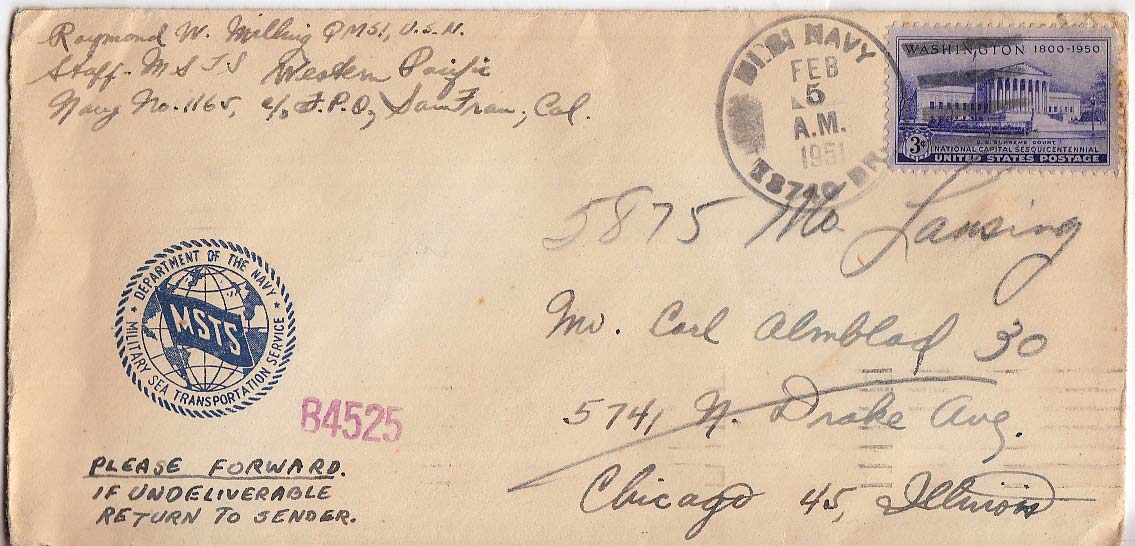 Raymond W. Milling PMSI, U.S.N.
Staff-MSTS Western Pacific
Navy No. 1165, c/o F.P.O., San Fran, Cal.
NAVY
FEB
5
A.M.
1951
BR.
WASHINGTON 1800-1950
3¢
U.S. SUPREME COURT
NATIONAL CAPITAL SESQUICENTENNIAL
UNITED STATES POSTAGE
5875 No. Lansing
Mr. Carl Almblad 30
5741 N. Drake Ave.
Chicago 45, Illinois
DEPARTMENT OF THE NAVY
MSTS
MILITARY SEA TRANSPORTATION SERVICE
B4525
PLEASE FORWARD.
IF UNDELIVERABLE
RETURN TO SENDER.